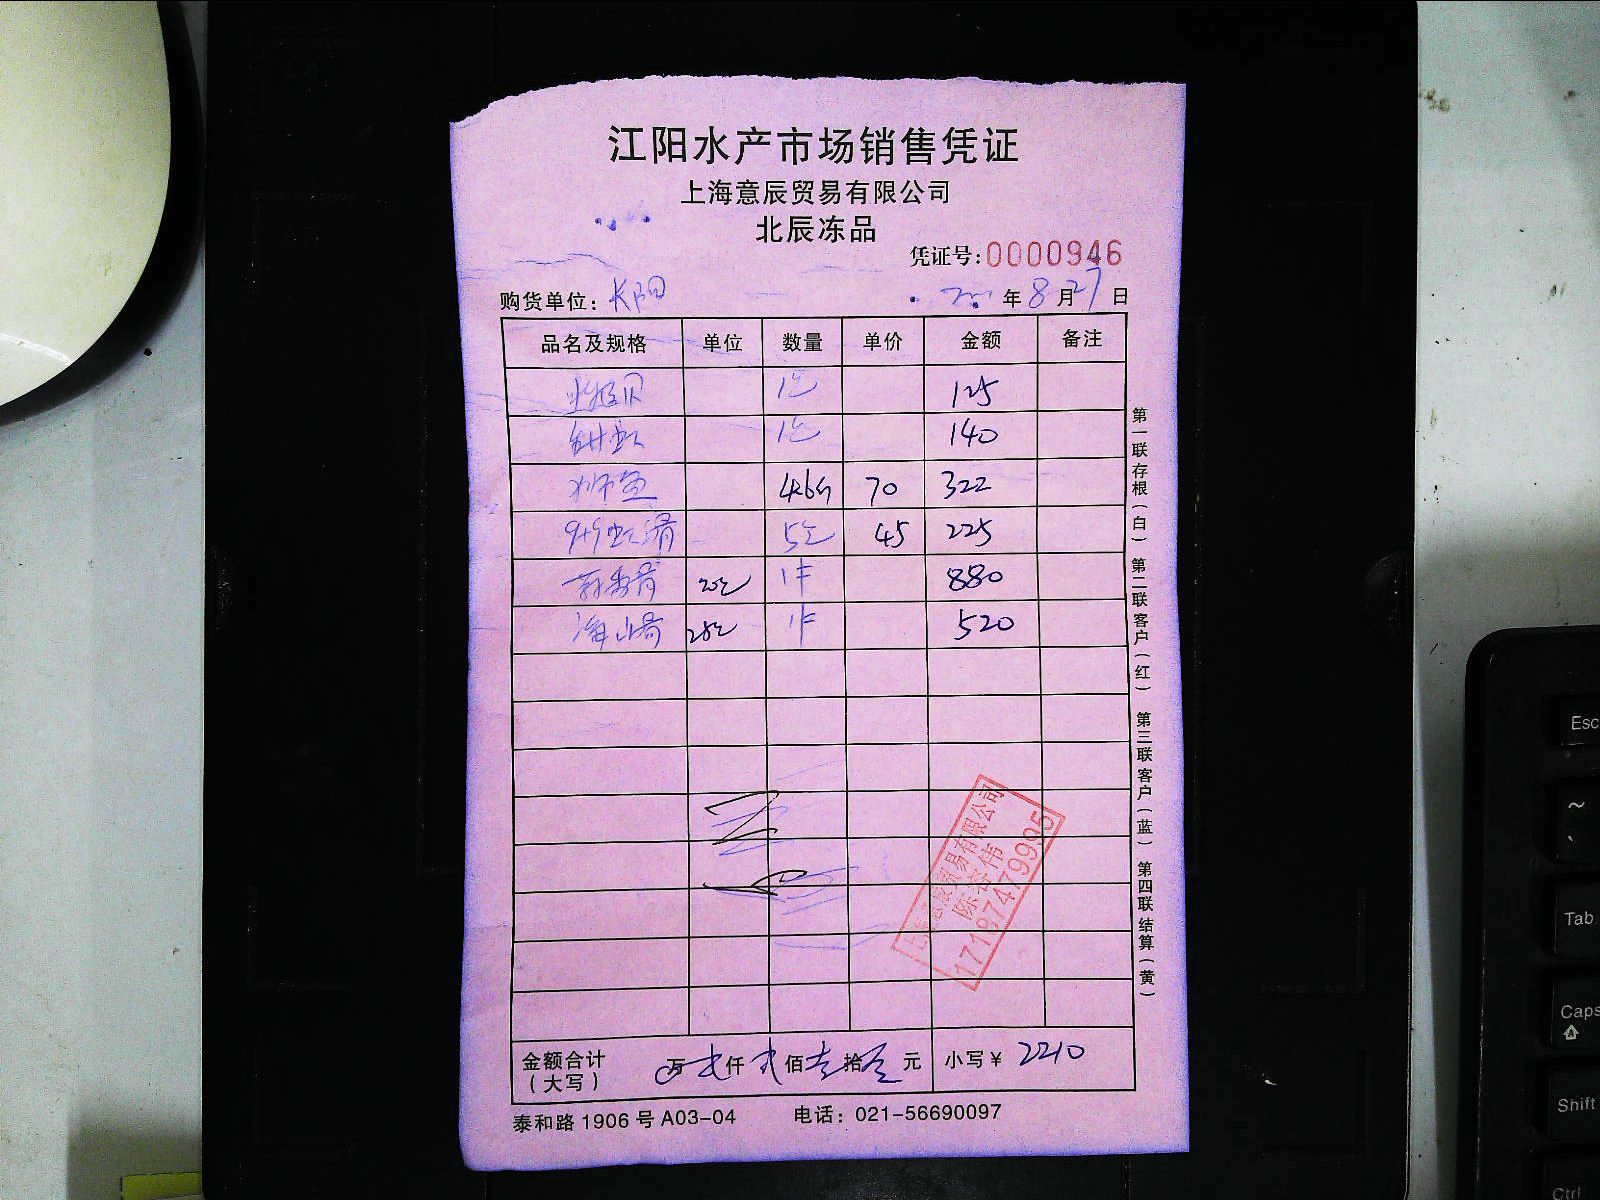 江阳水产市场销售凭证
上海意辰贸易有限公司
北辰冻品
凭证号:0000946
购货单位: 长阳 年 8 月 27 日
品名及规格 单位 数量 单价 金额 备注
北极贝 1包 125
甜虾 1包 140
狮鱼 4.6斤 70 322
5包 45 225
20包 1件 880
1件 520
金额合计 万 仟 佰 拾 元 小写￥ 2210
(大写)
泰和路 1906 号 A03-04 电话: 021-56690097
第一联存根(白) 第二联客户(红) 第三联客户(蓝) 第四联结算(黄)
上海意辰贸易有限公司
17187479995
Esc
~
、
Tab
Caps
Shift
Ctrl